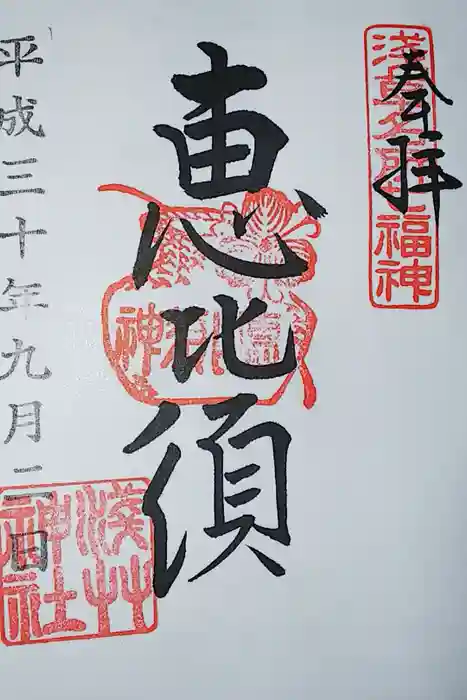 奉拝
浅草名所七福神
恵比須
平成三十年九月二日
淺艸神社